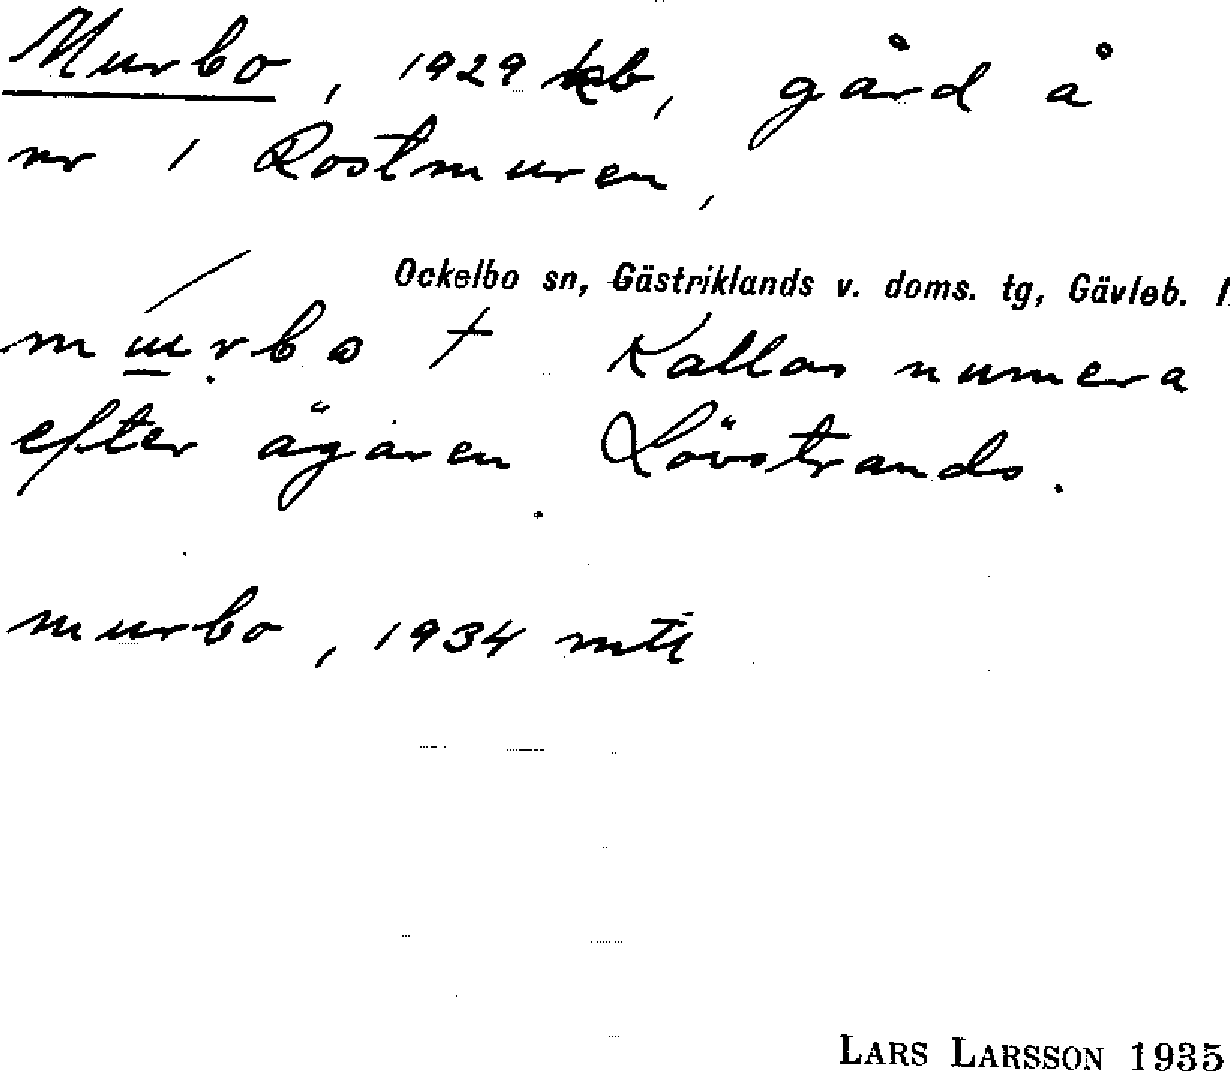 Murbo, 1929 kb, gård å
nr 1 Rostmuren,
Ockelbo sn, Gästriklands v. doms. tg, Gävleb. l.
murbo + Kallas numera
efter ägaren Lövstrands.
murbo, 1934 mtl
LARS LARSSON 1935